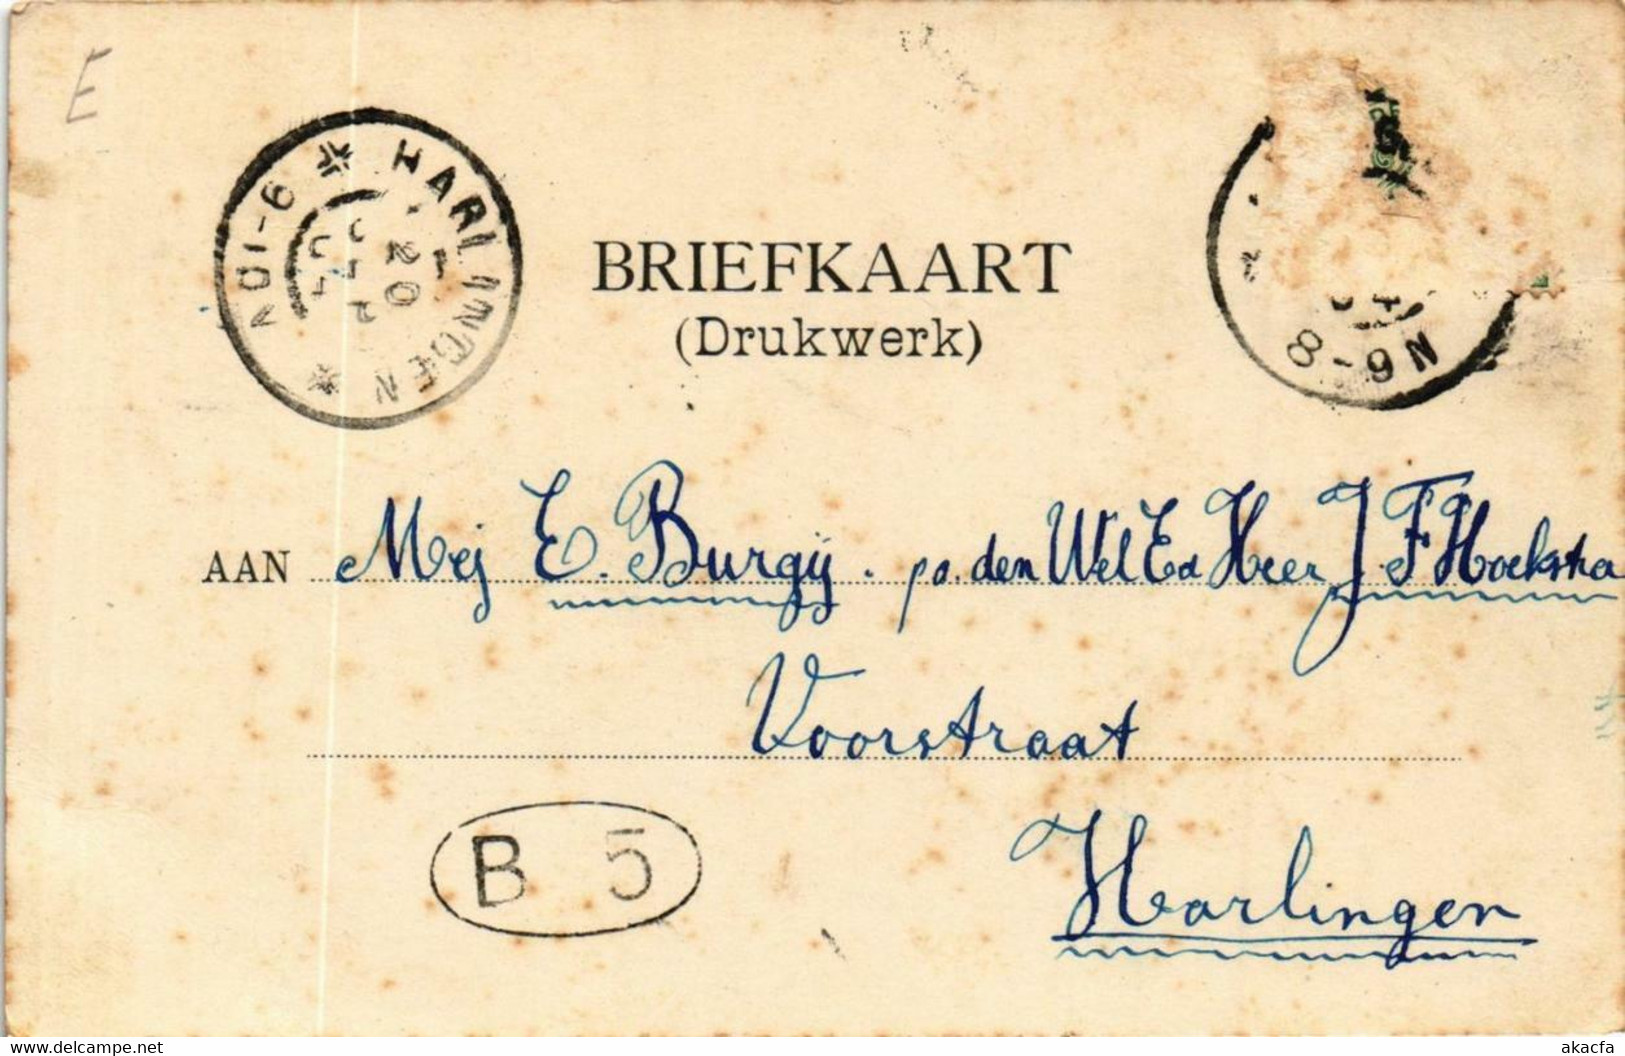 E
HARLINGEN
9-10N
20
8-9N
BRIEFKAART
(Drukwerk)
AAN Mej E. Burgij. po. den Wel Ed Heer J. F. Hoekstra
Voorstraat
B 5
Harlingen
www.delcampe.net
akacfa